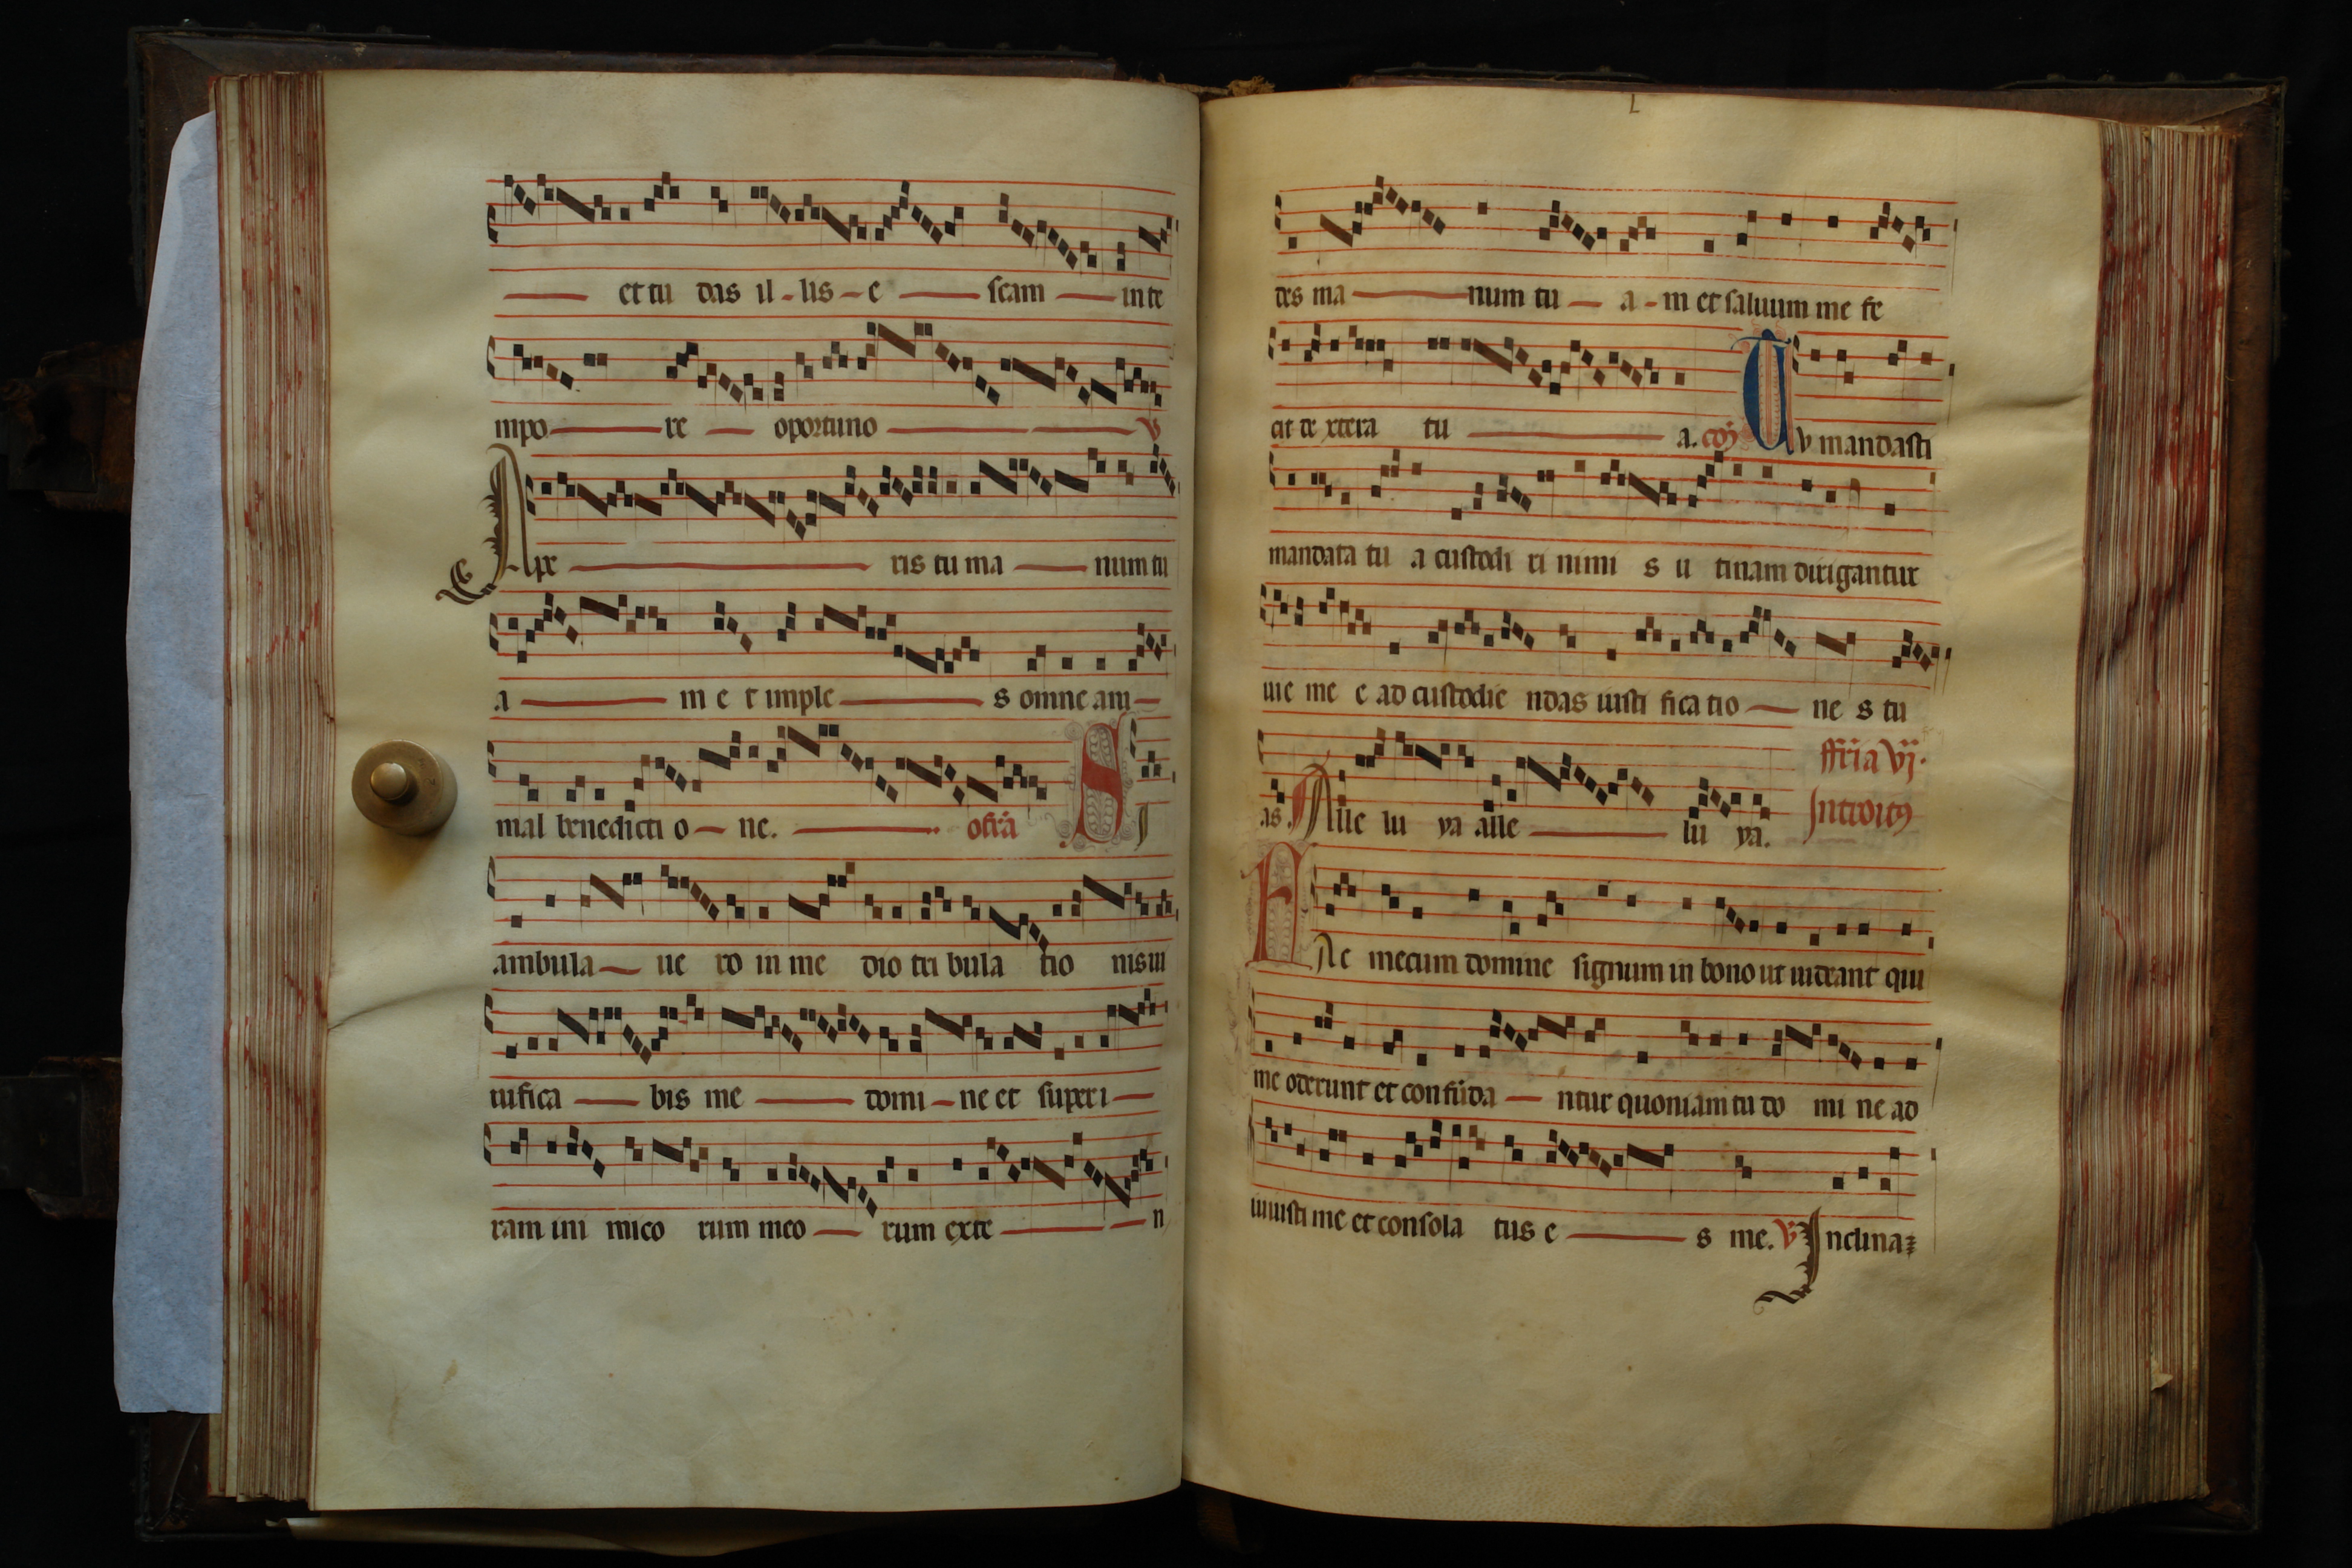 et tu das il-lis-e scam in te
mpo re oportuno V
Ape ris tu ma num tu
a m e t imple s omne ani
mal benedicti o ne. ofr̄a S I
ambula ue ro in me dio tri bula tio nis ui
uifica bis me domi-ne et super i
ram ini mico rum meo rum exte n
L
des ma num tu a-m et saluum me fe
cit de xtera tu a. cōj Tv mandasti
mandata tu a custodi ri nimi s u tinam dirigantur
uie me e ad custodie ndas iusti fica tio ne s tu
as. Alle lu ya alle lu ya. ffr̄ia Vj. Introitꝰ
FAc mecum domine signum in bono ut uideant qui
me oderunt et confūda ntur quoniam tu do mi ne ad
iuuisti me et consola tus e s me. V Inclina